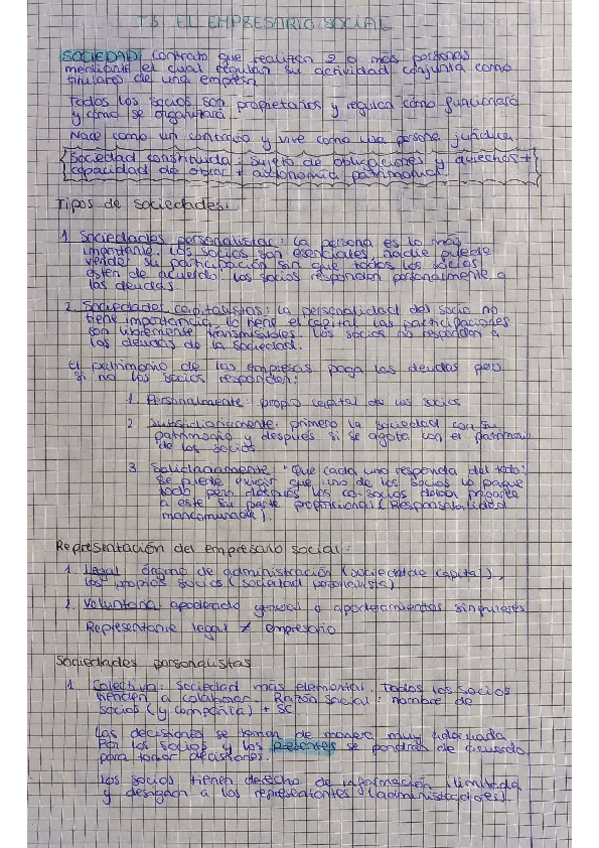 T3. EL EMPRESARIO SOCIAL
SOCIEDAD: contrato que realizan 2 o más personas
mediante el cual regulan su actividad conjunta como
titulares de una empresa.
Todos los socios son propietarios y regulan cómo funcionará
y cómo se organizará.
Nace como un contrato y vive como una persona jurídica.
Sociedad constituida: sujeto de obligaciones y derechos +
capacidad de obrar + autonomía patrimonial.
Tipos de sociedades:
1. Sociedades personalistas: la persona es lo más
importante. Los socios son esenciales, nadie puede
vender su participación sin que todos los socios
estén de acuerdo. Los socios responden personalmente a
las deudas.
2. Sociedades capitalistas: la personalidad del socio no
tiene importancia, la tiene el capital. Las participaciones
son libremente transmisibles. Los socios no responden a
las deudas de la sociedad.
El patrimonio de las empresas paga las deudas pero
si no los socios responden:
1. Personalmente: propio capital de los socios
2. Subsidiariamente: primero la sociedad con su
patrimonio y después si se agota con el patrimonio
de los socios.
3. Solidariamente: "Que cada uno responda del todo".
Se puede exigir que uno de los socios lo pague
todo pero después los co-socios deben pagarle
a este su parte proporcional (Responsabilidad
mancomunada).
Representación del empresario social:
1. Legal: órgano de administración (sociedad de capital),
los propios socios (sociedad personalista)
2. Voluntaria: apoderado general o apoderamientos singulares
Representante legal ≠ empresario
Sociedades personalistas
1. Colectiva: Sociedad más elemental. Todos los socios
tienden a colaborar. Razón social: nombre de
socios (y compañía) + SC.
Las decisiones se toman de manera muy adecuada.
Por los socios y los presentes se pondrán de acuerdo
para tomar decisiones.
Los socios tienen derecho de información ilimitada
y designan a los representantes (administradores).